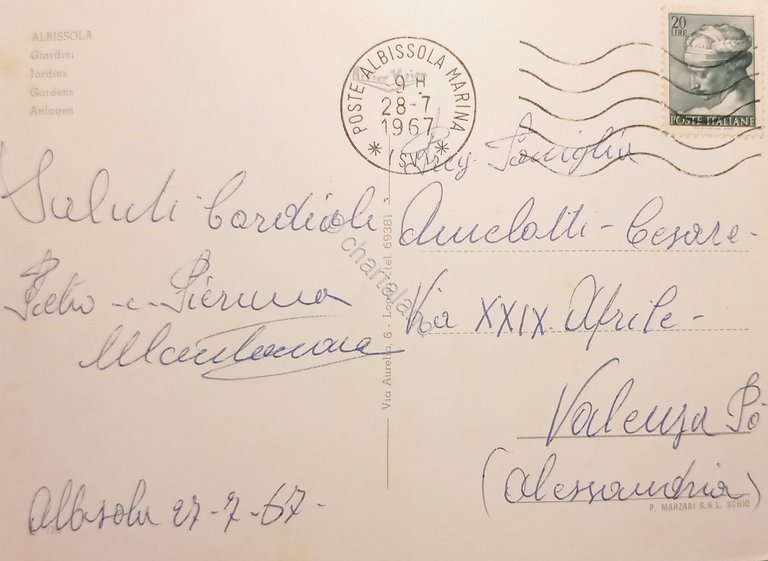 ALBISSOLA
Giardini
Jardins
Gardens
Anlagen
POSTE ALBISSOLA MARINA
9 H
28-7
1967
(SV)
20
LIRE
POSTE ITALIANE
Saluti Cordiali
Pietro - e - Pierina
Albisola 27-7-67-
Via Aurelia, 6 - tel. 69381
Preg. Famiglia
Amelotti - Cesare -
Via XXIX Aprile -
Valenza Po
(Alessandria)
P. MARZARI S.R.L. SCHIO
chartaland